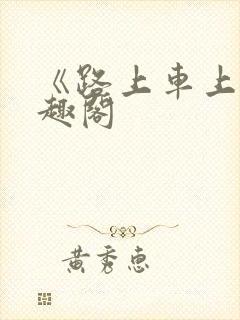 《路上車上
趣閣
黃秀惠